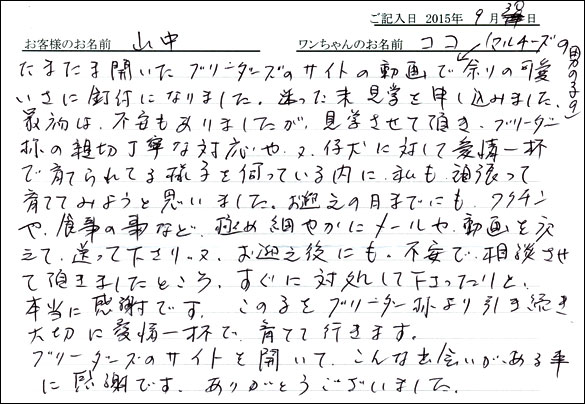 ご記入日 2015年 9月30日
お客様のお名前 山中 ワンちゃんのお名前 ココ マルチーズの男の子♂
たまたま開いたブリーダーズのサイトの動画で余りの可愛
いさに釘付になりました。迷った末見学を申し込みました。
最初は、不安もありましたが、見学させて頂き、ブリーダー
様の親切丁寧な対応や、又、仔犬に対して愛情一杯
で育てられてる様子を伺っている内に、私も頑張って
育ててみようと思いました。お迎えの月までにも、ワクチン
や、食事の事など、極め細やかにメールや、動画を交
えて、送って下さり、又、お迎え後にも、不安で、相談させ
て頂きましたところ、すぐに対処して下さったりと、
本当に感謝です。この子をブリーダー様より引き続き
大切に愛情一杯で、育てて行きます。
ブリーダーズのサイトを開いて、こんな出会いがある事
に感謝です。ありがとうございました。